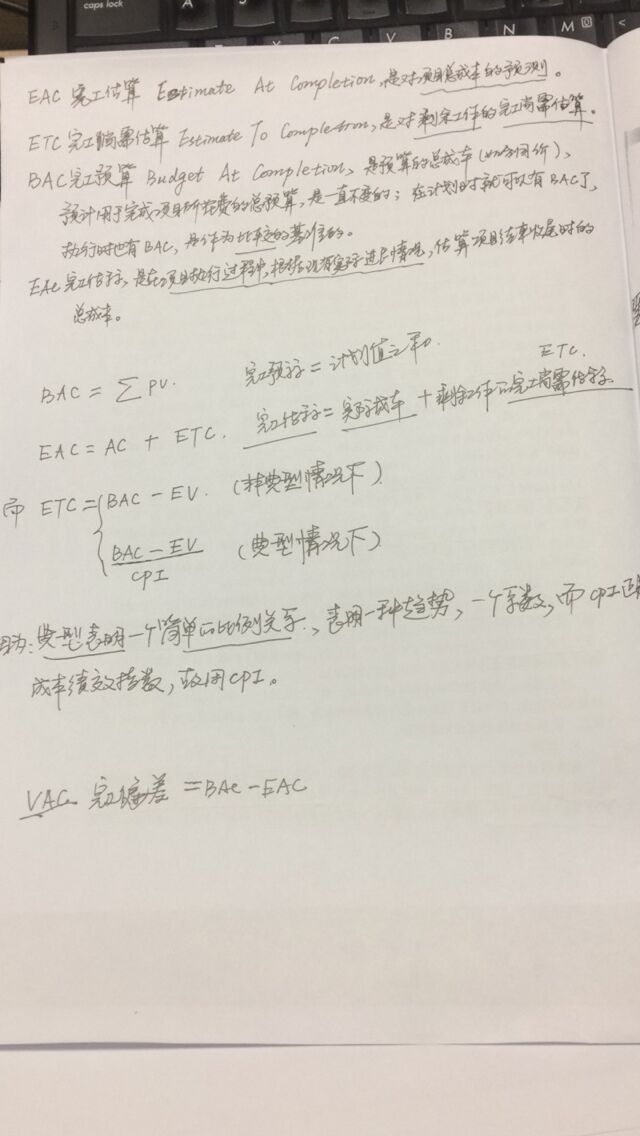 caps lock
C V B N M
EAC 完工估算 Estimate At Completion,是对项目总成本的预测。
ETC 完工尚需估算 Estimate To Completion,是对剩余工作的完工尚需估算。
BAC完工预算 Budget At Completion、是预算的总成本(如合同价)、
预计用于完成项目所花费的总预算,是一直不变的;在计划时就可以有BAC了,
执行时也有BAC,是作为比较的基准的。
EAC完工估算,是在项目执行过程中,根据现有实际进展情况,估算项目结束收尾时的
总成本。
BAC = ∑ PV. 完工预算=计划值之和.
ETC.
EAC = AC + ETC. 完工估算=实际成本+剩余工作的完工尚需估算.
而 ETC = { BAC - EV. (非典型情况下)
BAC - EV / CPI (典型情况下)
因为:典型表明一个简单的比例关系、表明一种趋势,一个系数,而CPI正
成本绩效指数,故用CPI。
VAC 完工偏差 = BAC - EAC